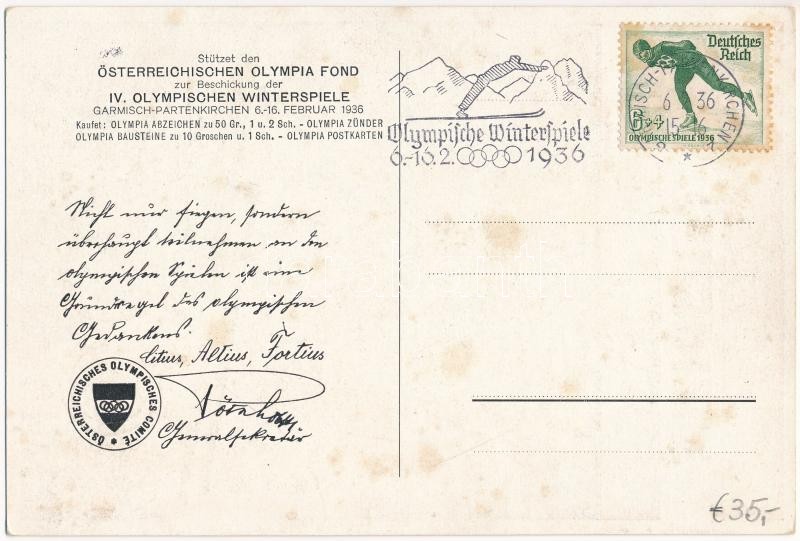 Stützet den
ÖSTERREICHISCHEN OLYMPIA FOND
zur Beschickung der
IV. OLYMPISCHEN WINTERSPIELE
GARMISCH-PARTENKIRCHEN 6.-16. FEBRUAR 1936
Kaufet: OLYMPIA ABZEICHEN zu 50 Gr., 1 u. 2 Sch. - OLYMPIA ZÜNDER
OLYMPIA BAUSTEINE zu 10 Groschen u. 1 Sch. - OLYMPIA POSTKARTEN
Olympische Winterspiele
6.-16.2. 1936
Deutsches
Reich
6+4
OLYMPISCHE SPIELE 1936
Nicht nur siegen, sondern
überhaupt teilnehmen an den
olympischen Spielen ist eine
Grundregel des olympischen
Gedankens.
Citius, Altius, Fortius
Generalsekretär
ÖSTERREICHISCHES OLYMPISCHES COMITÉ
€35,-